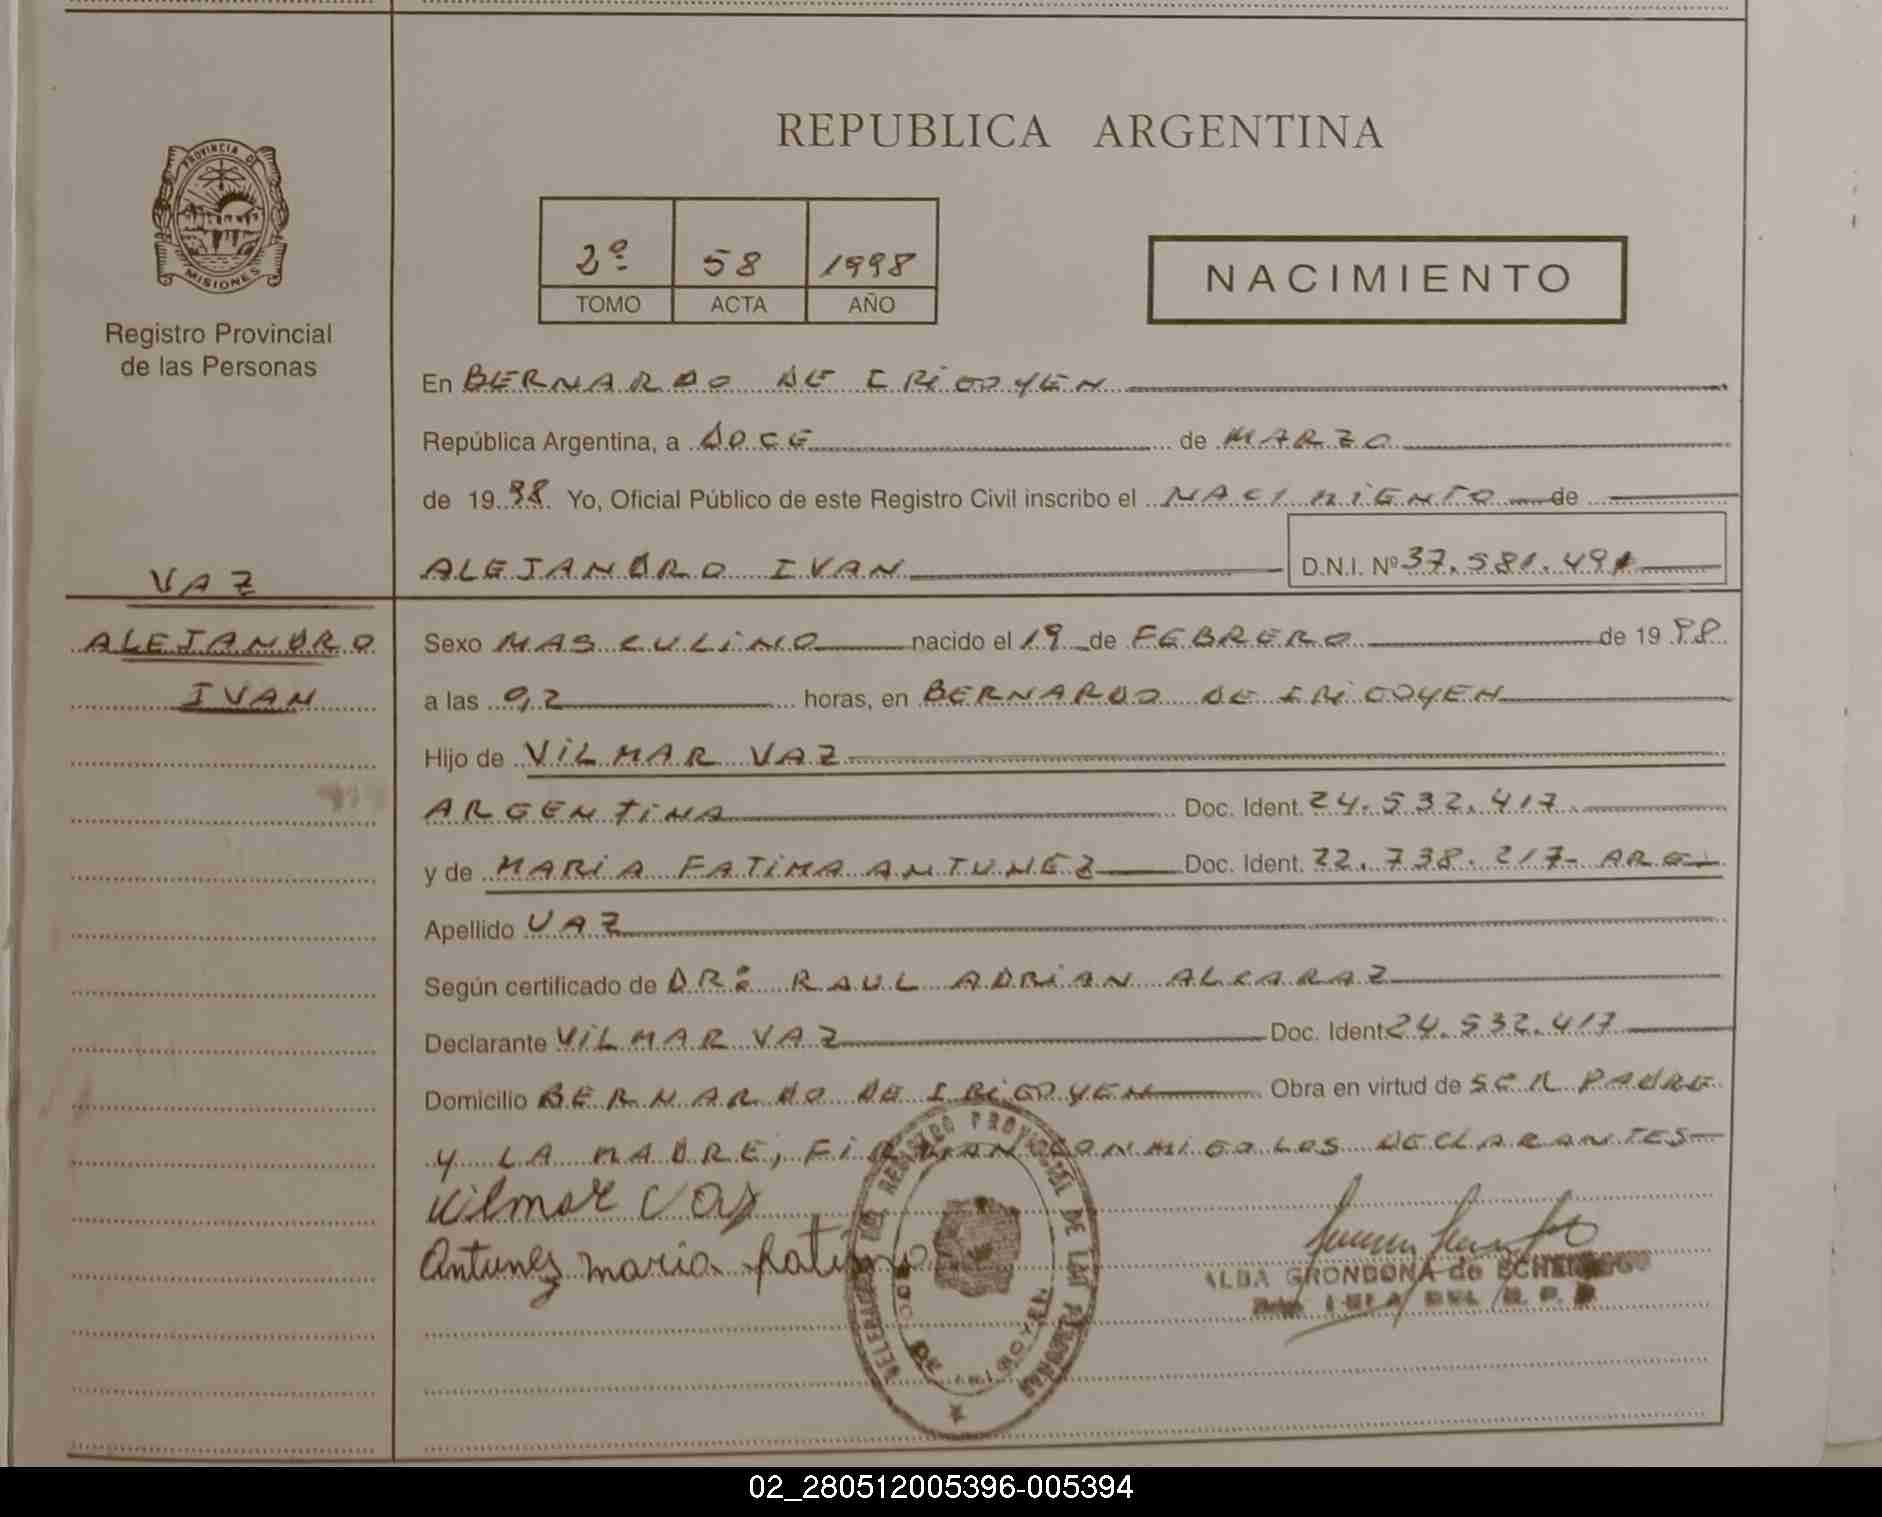 REPUBLICA ARGENTINA
PROVINCIA DE
MISIONES
Registro Provincial
de las Personas
2º 58 1998
TOMO ACTA AÑO
NACIMIENTO
En BERNARDO DE IRIGOYEN
República Argentina, a DOCE de MARZO
de 1998 Yo, Oficial Público de este Registro Civil inscribo el NACIMIENTO de
ALEJANDRO IVAN D.N.I. Nº 37.581.491
VAZ
ALEJANDRO
IVAN
Sexo MASCULINO nacido el 19 de FEBRERO de 1998
a las 9,2 horas, en BERNARDO DE IRIGOYEN
Hijo de VILMAR VAZ
ARGENTINA Doc. Ident. 24.532.417
y de MARIA FATIMA ANTUNEZ Doc. Ident. 22.738.217- ARG-
Apellido VAZ
Según certificado de DR: RAUL ADRIAN ALCARAZ
Declarante VILMAR VAZ Doc. Ident 24.532.417
Domicilio BERNARDO DE IRIGOYEN Obra en virtud de SER PADRE
Y LA MADRE, FIRMAN CONMIGO LOS DECLARANTES-
Vilmar Vaz
Antunez maria fatima
REGISTRO PROVINCIAL DE LAS PERSONAS
ALBA GRONDONA de
02_280512005396-005394